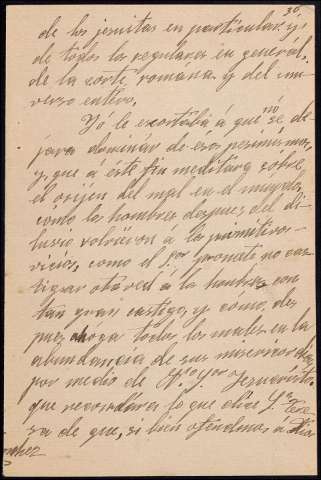 30.
de los jesuitas en particular y
de todos los regulares en general,
de la corte romana y del uni-
verso entero.
Yó le exortaba á que no se de-
jara dominar de ese pesimismo,
y que á éste fin meditara sobre
el orijen del mal en el mundo,
como los hombres despues del di-
luvio volvieron á los primitivos
vicios, como el Sor. promete no cas-
tigar otra vez á la hombre con
tan gran castigo, y como, des-
pues ahoga todos los males en la
abundancia de sus misericordias
por medio de N. Sor. Jesucristo,
que recordara lo que dice Sta. Tere-
sa de que, si bien ofendemos á Dios